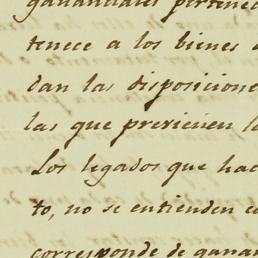 gananciales pertenec
tenece a los bienes
dan las disposicione
las que previenen l
Los legados que hac
to, no se entienden c
corresponde de ganan